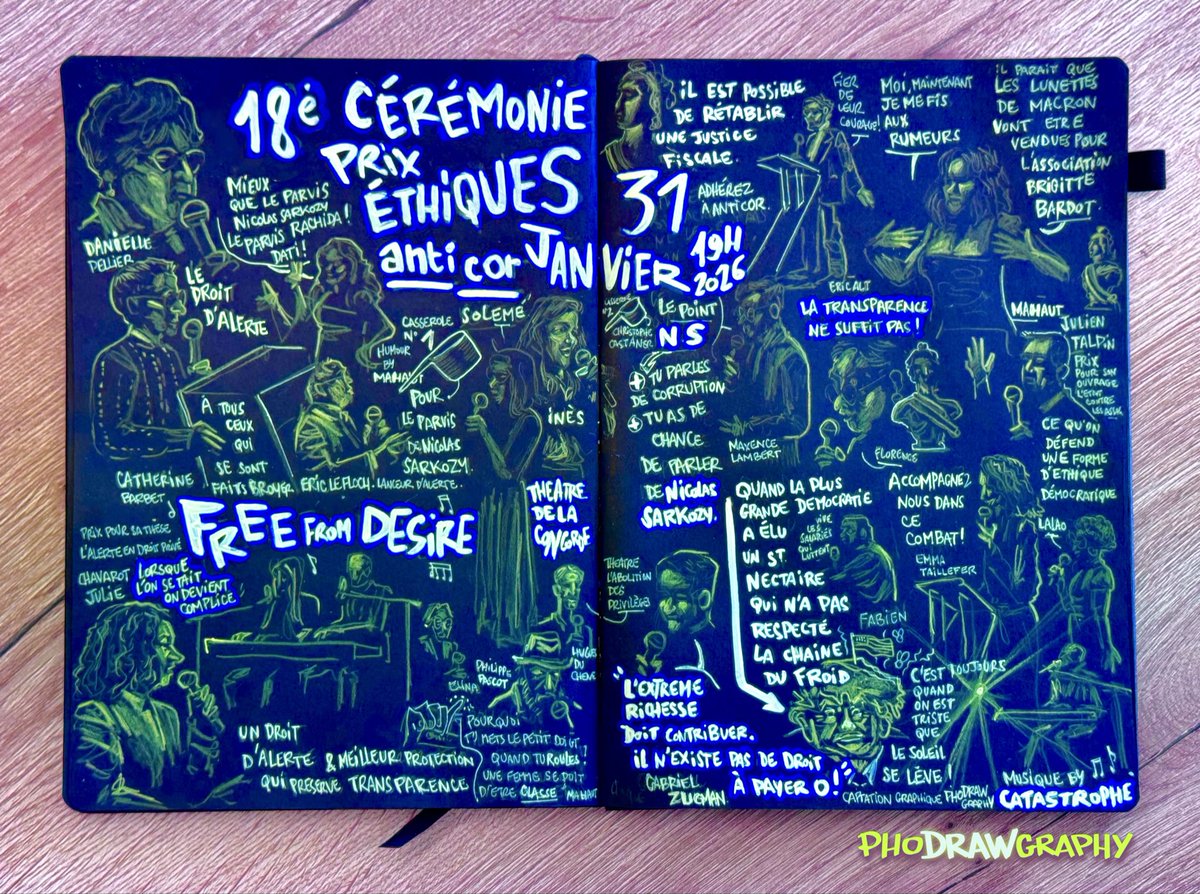 18è CÉRÉMONIE
PRIX
ÉTHIQUES
anticor
JANVIER
31
19H
2026
DANIELLE
PELLIER
MIEUX
QUE LE PARVIS
NICOLAS SARKOZY
LE PARVIS RACHIDA
DATI !
LE
DROIT
D'ALERTE
CATHERINE
BARBET
À TOUS
CEUX
QUI
SE SONT
FAITS BROYER
CASSEROLE
N° 1
HUMOUR
BY
MAHAUT
POUR
LE PARVIS
DE NICOLAS
SARKOZY.
ERIC LE FLOCH.
LANCEUR D'ALERTE.
SOLEMÉ
INÈS
THEATRE
DE LA
CONCORDE
FREE FROM DESIRE
PRIX POUR SA THÈSE
L'ALERTE EN DROIT PRIVÉ
CHAVAROT
JULIE
LORSQUE
L'ON SE TAIT
ON DEVIENT
COMPLICE.
UN DROIT
D'ALERTE & MEILLEUR PROTECTION
QUI PRÉSERVE TRANSPARENCE
PHILIPPE
PASCOT
POURQUOI
T'METS LE PETIT DOIGT
QUAND TU ROULES !
UNE FEMME SE DOIT
D'ETRE CLASSE
MAHAUT
IL EST POSSIBLE
DE RÉTABLIR
UNE JUSTICE
FISCALE.
ADHÉREZ
À ANTICOR.
FIER
DE
LEUR
COURAGE !
ERIC ALT
MOI, MAINTENANT
JE ME FIS
AUX
RUMEURS
IL PARAIT QUE
LES LUNETTES
DE MACRON
VONT ETRE
VENDUES POUR
L'ASSOCIATION
BRIGITTE
BARDOT.
MAHAUT
LA TRANSPARENCE
NE SUFFIT PAS !
N°2
CHRISTOPHE
CASTANER
LE POINT
N.S
+ TU PARLES
DE CORRUPTION
+ TU AS DE
CHANCE
DE PARLER
DE NICOLAS
SARKOZY.
MAXENCE
LAMBERT
FLORENCE
JULIEN
TALPIN
PRIX
POUR SON
OUVRAGE
L'ETAT CONTRE
LES ASSOS
CE QU'ON
DÉFEND
UNE FORME
D'ETHIQUE
DÉMOCRATIQUE
QUAND LA PLUS
GRANDE DÉMOCRATIE
A ÉLU
UN ST
NECTAIRE
QUI N'A PAS
RESPECTÉ
LA CHAINE
DU FROID
VIVE
LES
SALARIÉS
QUI
LUTTENT
FABIEN
ACCOMPAGNEZ
NOUS DANS
CE
COMBAT !
EMMA
TAILLEFER
LALAO
THEATRE
L'ABOLITION
DES
PRIVILÈGES
"L'EXTREME
RICHESSE
DOIT CONTRIBUER.
IL N'EXISTE PAS DE DROIT
À PAYER 0 !"
GABRIEL
ZUCMAN
C'EST TOUJOURS
QUAND
ON EST
TRISTE
QUE
LE SOLEIL
SE LÈVE !
CAPTATION GRAPHIQUE PHODRAWGRAPHY
MUSIQUE BY
CATASTROPHE
PHODRAWGRAPHY